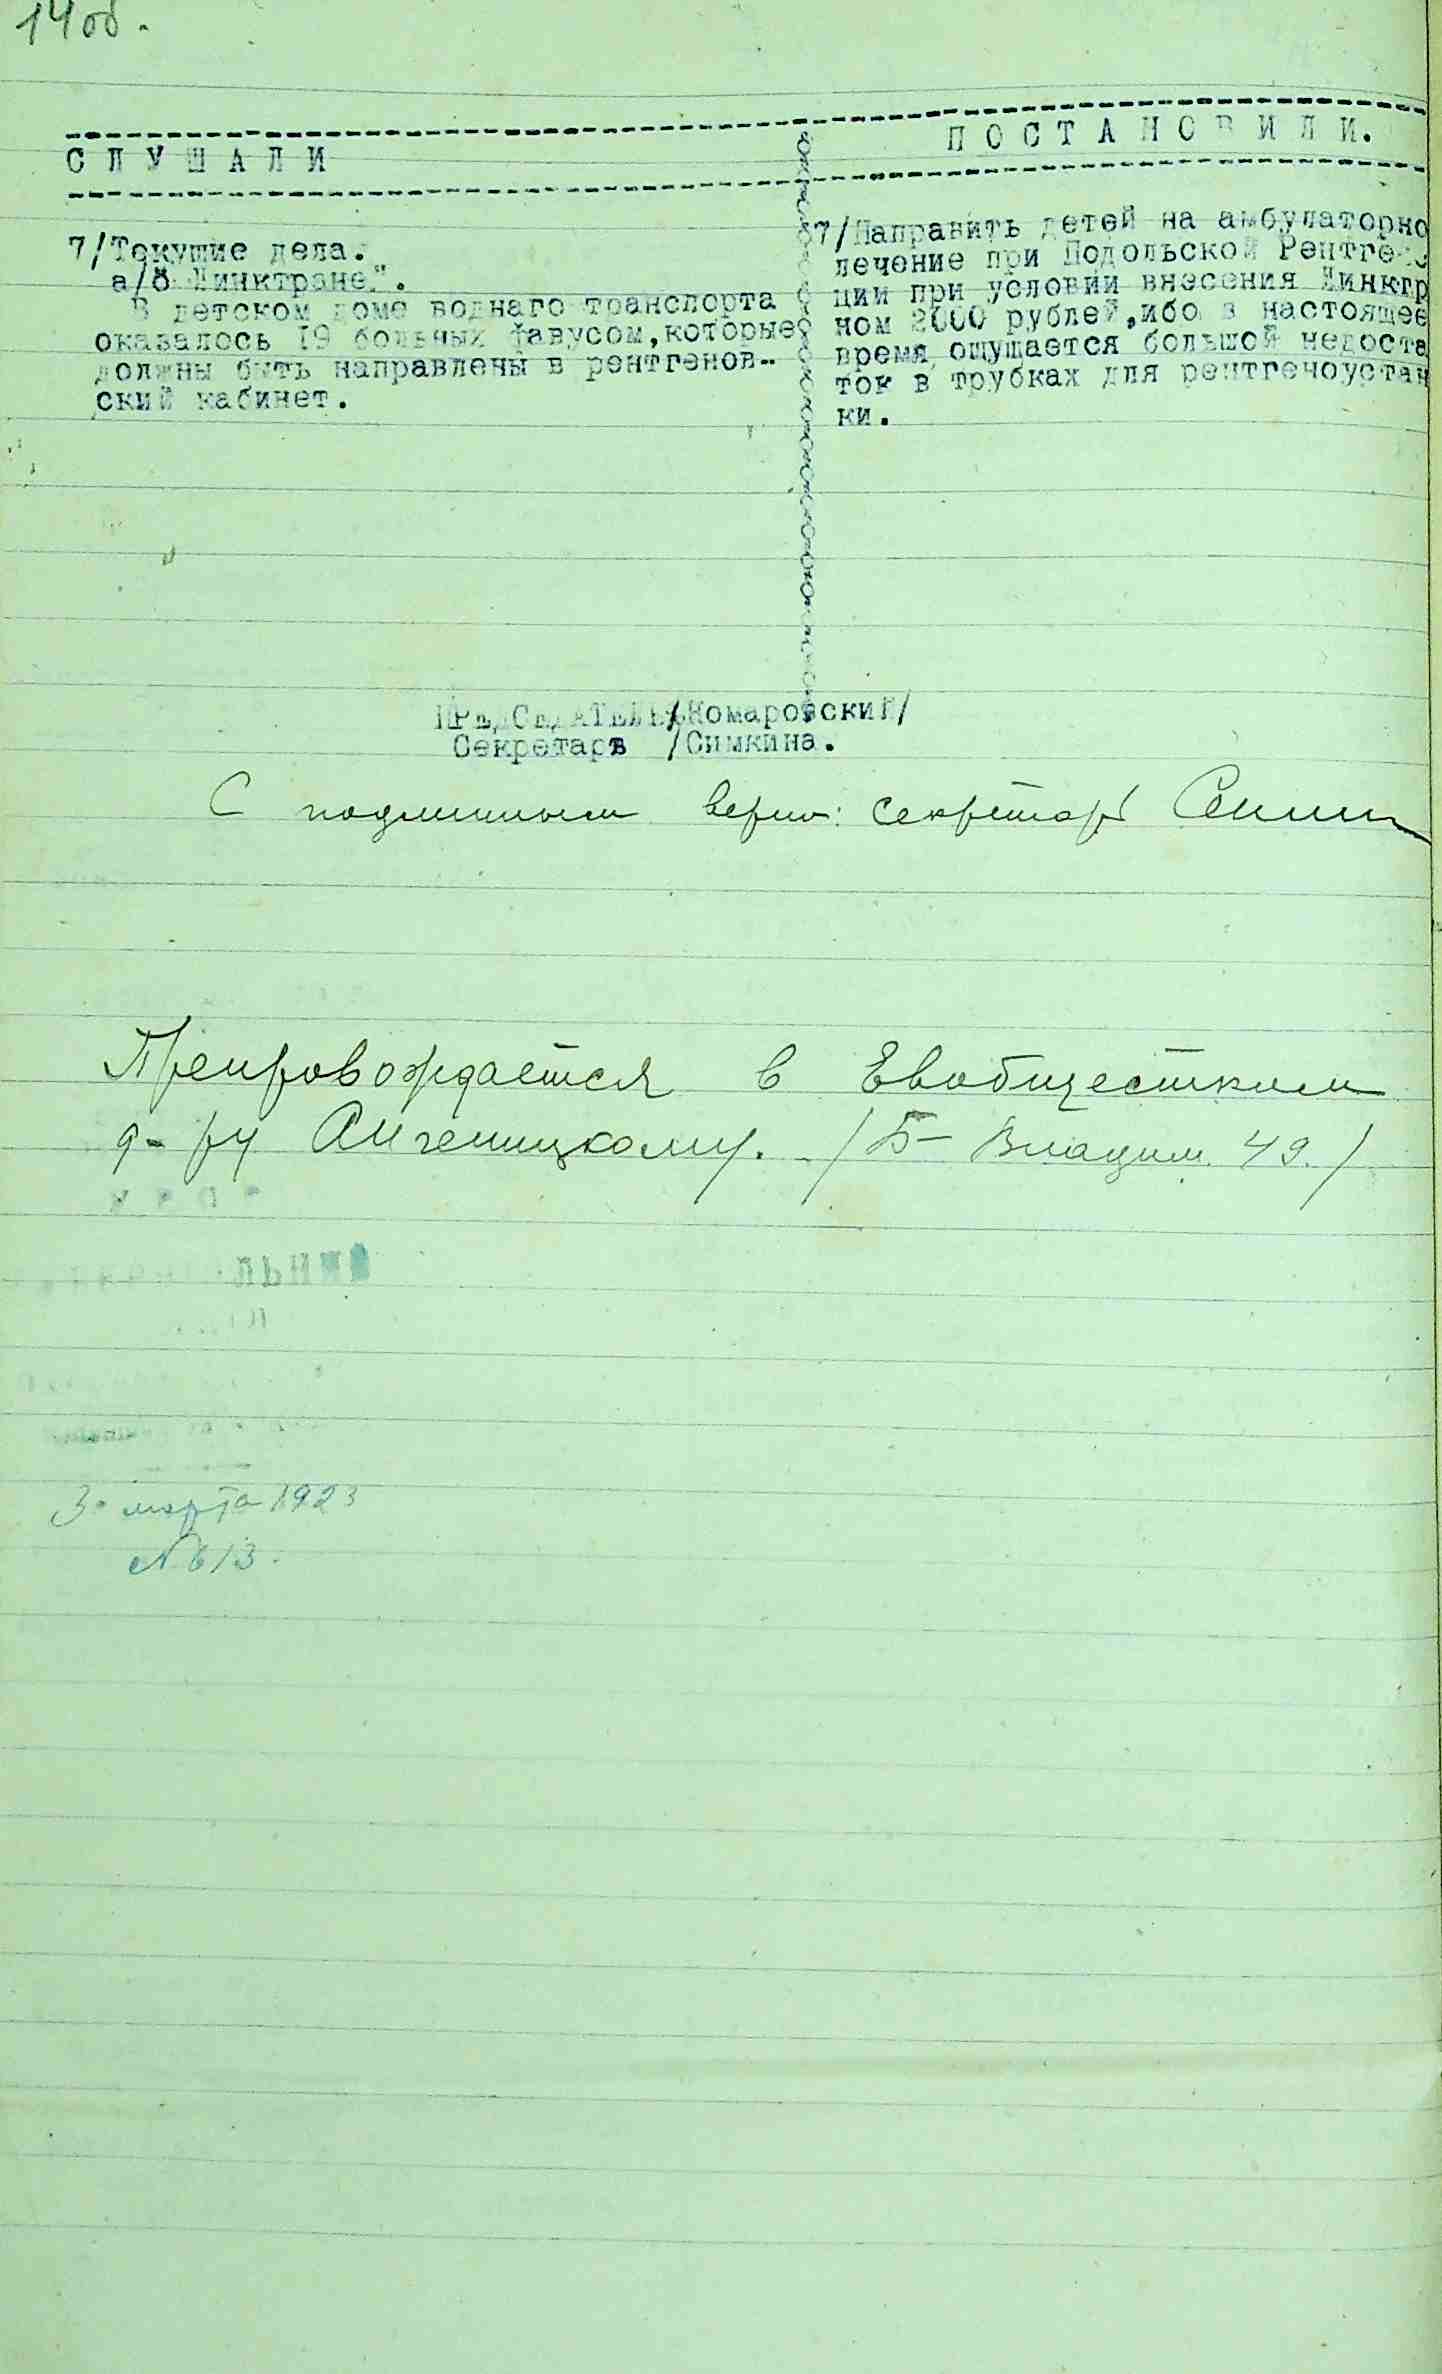 14 об.
СЛУШАЛИ
ПОСТАНОВИЛИ.
7/Текущие дела.
а/О
В детском доме воднаго транспорта
оказалось 19 больных фавусом,которые
должны быть направлены в рентгенов-
ский кабинет.
7/Направить детей на амбулаторно
лечение при Подольской Рентге
ции при условии внесения
ном 2000 рублей,ибо в настоящее
время ощущается большой недоста
ток в трубках для рентгеноустан
ки.
ПРЕДСЕДАТЕЛЬ /Комаровский/
Секретарь /Симкина.
С подлинным верно: Секретарь
Препровождается в Евобщестком
д-ру /Б- Владим. 49./
марта 1923
№ 613.